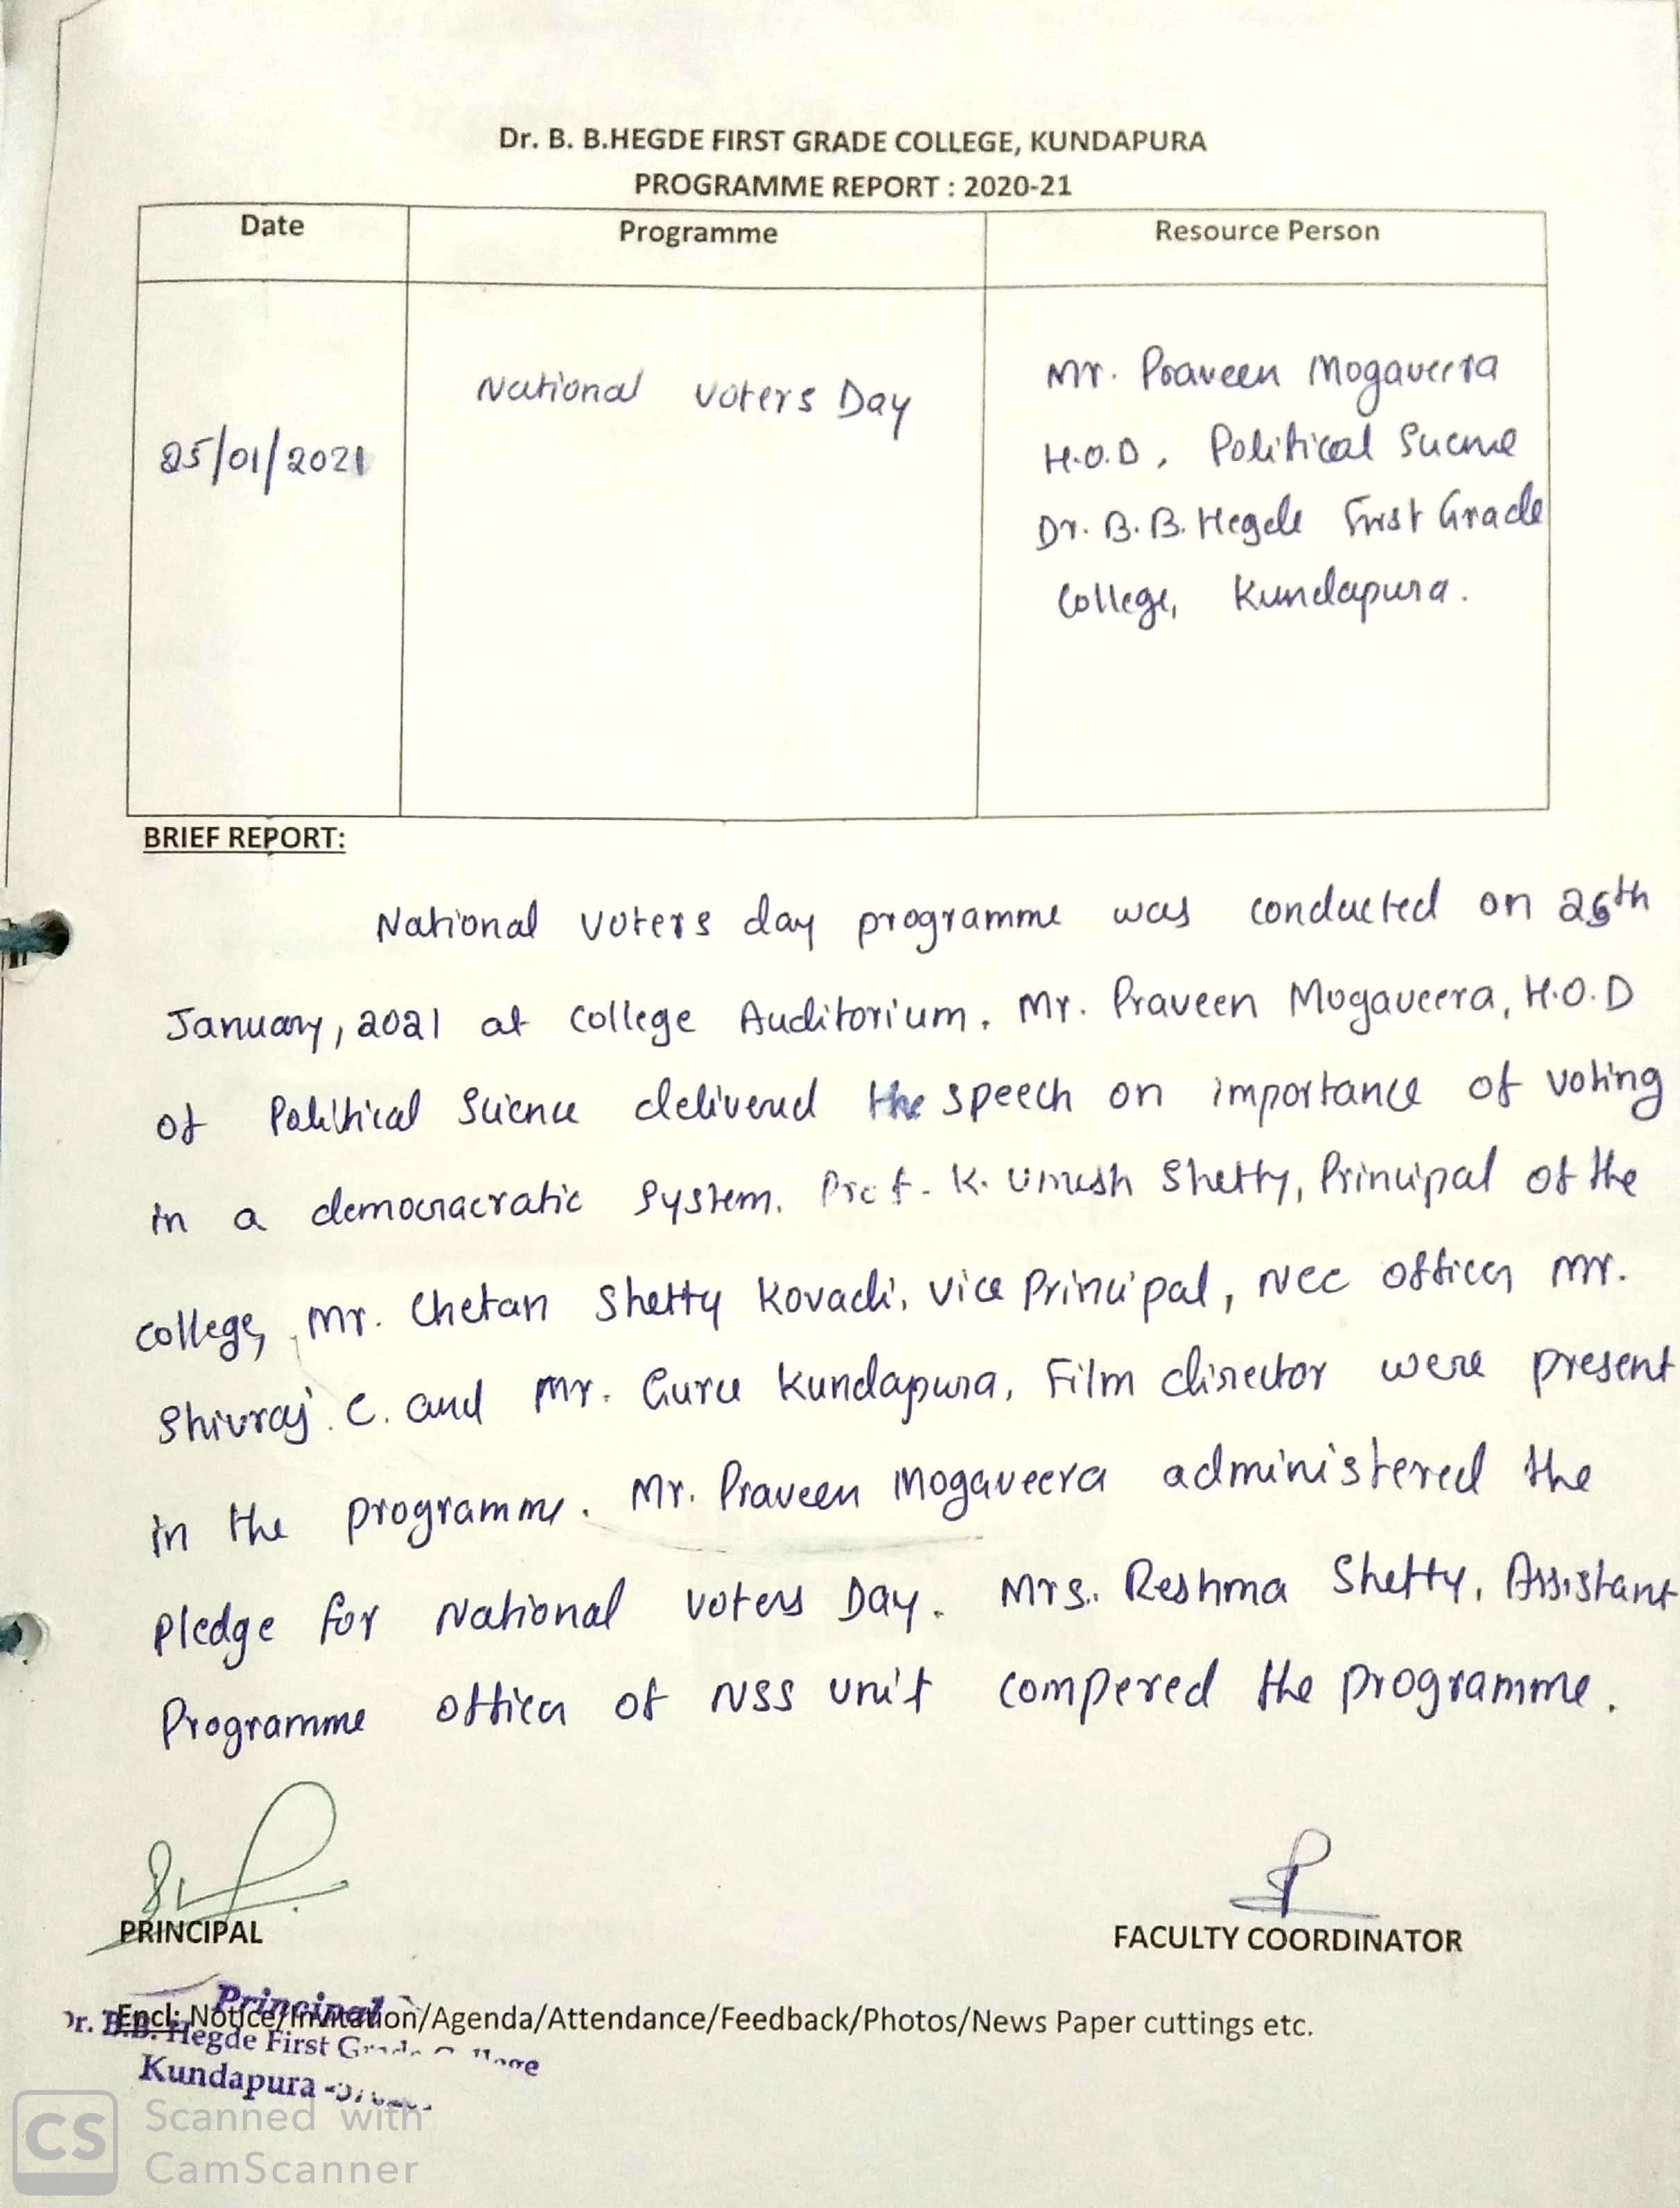 Dr. B. B.HEGDE FIRST GRADE COLLEGE, KUNDAPURA
PROGRAMME REPORT : 2020-21
Date Programme Resource Person
25/01/2021
National Voters Day
Mr. Praveen Mogaveera
H.O.D, Political Science
Dr. B.B. Hegde First Grade
College, Kundapura.
BRIEF REPORT:
National Voters day programme was conducted on th
January, 2021 at College Auditorium. Mr. Praveen Mogaveera, H.O.D
of Political Science delivered the speech on importance of voting
in a democracratic System. Prof. K. Umesh Shetty, Principal of the
college, Mr. Chetan Shetty Kovadi, Vice Principal, NCC officer Mr.
Shivraj C. and Mr. Guru Kundapura, Film director were present
in the programme. Mr. Praveen Mogaveera administered the
Pledge for National Voters Day. Mrs. Reshma Shetty, Assistant
Programme officer of NSS Unit compered the programme.
PRINCIPAL FACULTY COORDINATOR
Principal
Encl: Notice/Invitation/Agenda/Attendance/Feedback/Photos/News Paper cuttings etc.
Dr. B.B. Hegde First Grade College
Kundapura
CS Scanned with
CamScanner